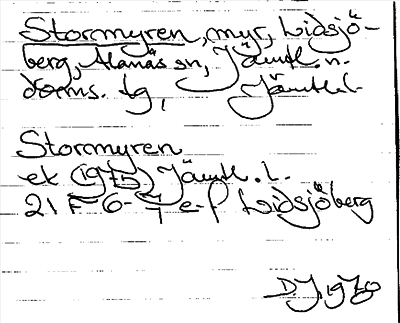 Stormyren, myr, Lidsjö-
berg, Alanäs sn, Jämtl. n.
doms. tg, Jämtl.l.
Stormyren
ek (1975) Jämtl. l.
21 F 6- 7 e-f Lidsjöberg
DJ 1978